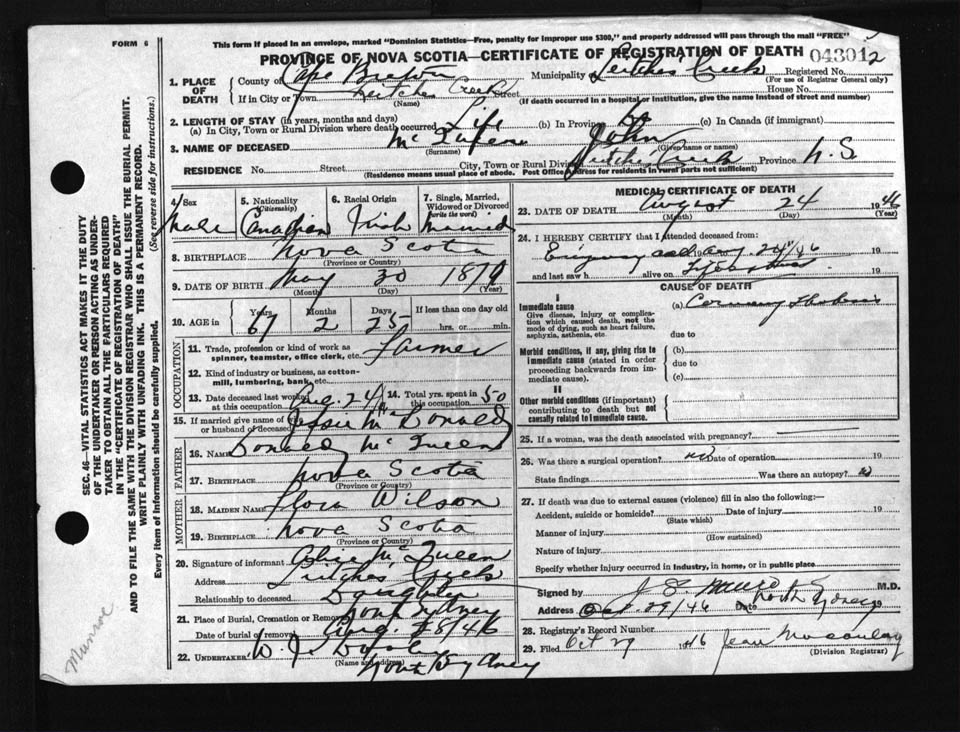 FORM 6
This form if placed in an envelope, marked "Dominion Statistics—Free, penalty for improper use $300," and properly addressed will pass through the mail "FREE"
PROVINCE OF NOVA SCOTIA—CERTIFICATE OF REGISTRATION OF DEATH
043012
1. PLACE OF DEATH
County of Cape Breton Municipality Leitches Creek Registered No.
(For use of Registrar General only)
If in City or Town Leitches Creek Street House No.
(Name) (If death occurred in a hospital or institution, give the name instead of street and number)
2. LENGTH OF STAY (in years, months and days)
(a) In City, Town or Rural Division where death occurred Life (b) In Province (c) In Canada (if immigrant)
3. NAME OF DECEASED McQueen John
(Surname) (Given name or names)
RESIDENCE No. Street City, Town or Rural Division Leitches Creek Province N.S.
(Residence means usual place of abode. Post Office Address for residents in rural parts not sufficient)
4. Sex Male
5. Nationality (Citizenship) Canadian
6. Racial Origin Irish
7. Single, Married, Widowed or Divorced (write the word) Married
8. BIRTHPLACE Nova Scotia
(Province or Country)
9. DATE OF BIRTH May 30 1879
(Month) (Day) (Year)
10. AGE in Years Months Days If less than one day old
67 2 25 hrs. or min.
OCCUPATION
11. Trade, profession or kind of work as spinner, teamster, office clerk, etc. Farmer
12. Kind of industry or business, as cotton-mill, lumbering, bank, etc.
13. Date deceased last worked at this occupation Aug. 24
14. Total yrs. spent in this occupation 50
15. If married give name of wife or husband of deceased Jessie McDonald
FATHER
16. NAME Donald McQueen
17. BIRTHPLACE Nova Scotia
(Province or Country)
MOTHER
18. MAIDEN NAME Flora Wilson
19. BIRTHPLACE Nova Scotia
(Province or Country)
20. Signature of informant Olive McQueen
Address Leitches Creek
Relationship to deceased Daughter
21. Place of Burial, Cremation or Removal North Sydney
Date of burial or removal Aug. 28/46
22. UNDERTAKER W. J.
(Name and address)
North Sydney
MEDICAL CERTIFICATE OF DEATH
23. DATE OF DEATH August 24 1946
(Month) (Day) (Year)
24. I HEREBY CERTIFY that I attended deceased from:
Emergency call Aug. 24/46 19
and last saw h alive on 19
CAUSE OF DEATH
I
Immediate cause
Give disease, injury or complication which caused death, not the mode of dying, such as heart failure, asphyxia, asthenia, etc.
(a) Coronary Thrombosis
due to
Morbid conditions, if any, giving rise to immediate cause (stated in order proceeding backwards from immediate cause).
(b)
due to
(c)
II
Other morbid conditions (if important) contributing to death but not causally related to immediate cause.
25. If a woman, was the death associated with pregnancy?
26. Was there a surgical operation? no Date of operation 19
State findings Was there an autopsy? no
27. If death was due to external causes (violence) fill in also the following:—
Accident, suicide or homicide? Date of injury 19
(State which)
Manner of injury
(How sustained)
Nature of injury
Specify whether injury occurred in industry, in home, or in public place
Signed by M.D.
North Sydney
Address Oct 29/46 Date 19
28. Registrar's Record Number
29. Filed Oct 29 1946 Jean Macaulay
(Division Registrar)
SEC. 46—VITAL STATISTICS ACT MAKES IT THE DUTY
OF THE UNDERTAKER OR PERSON ACTING AS UNDER-
TAKER TO OBTAIN ALL THE PARTICULARS REQUIRED
IN THE "CERTIFICATE OF REGISTRATION OF DEATH"
AND TO FILE THE SAME WITH THE DIVISION REGISTRAR WHO SHALL ISSUE THE BURIAL PERMIT.
WRITE PLAINLY WITH UNFADING INK. THIS IS A PERMANENT RECORD.
Every item of information should be carefully supplied. (See reverse side for instructions.)
Munroe